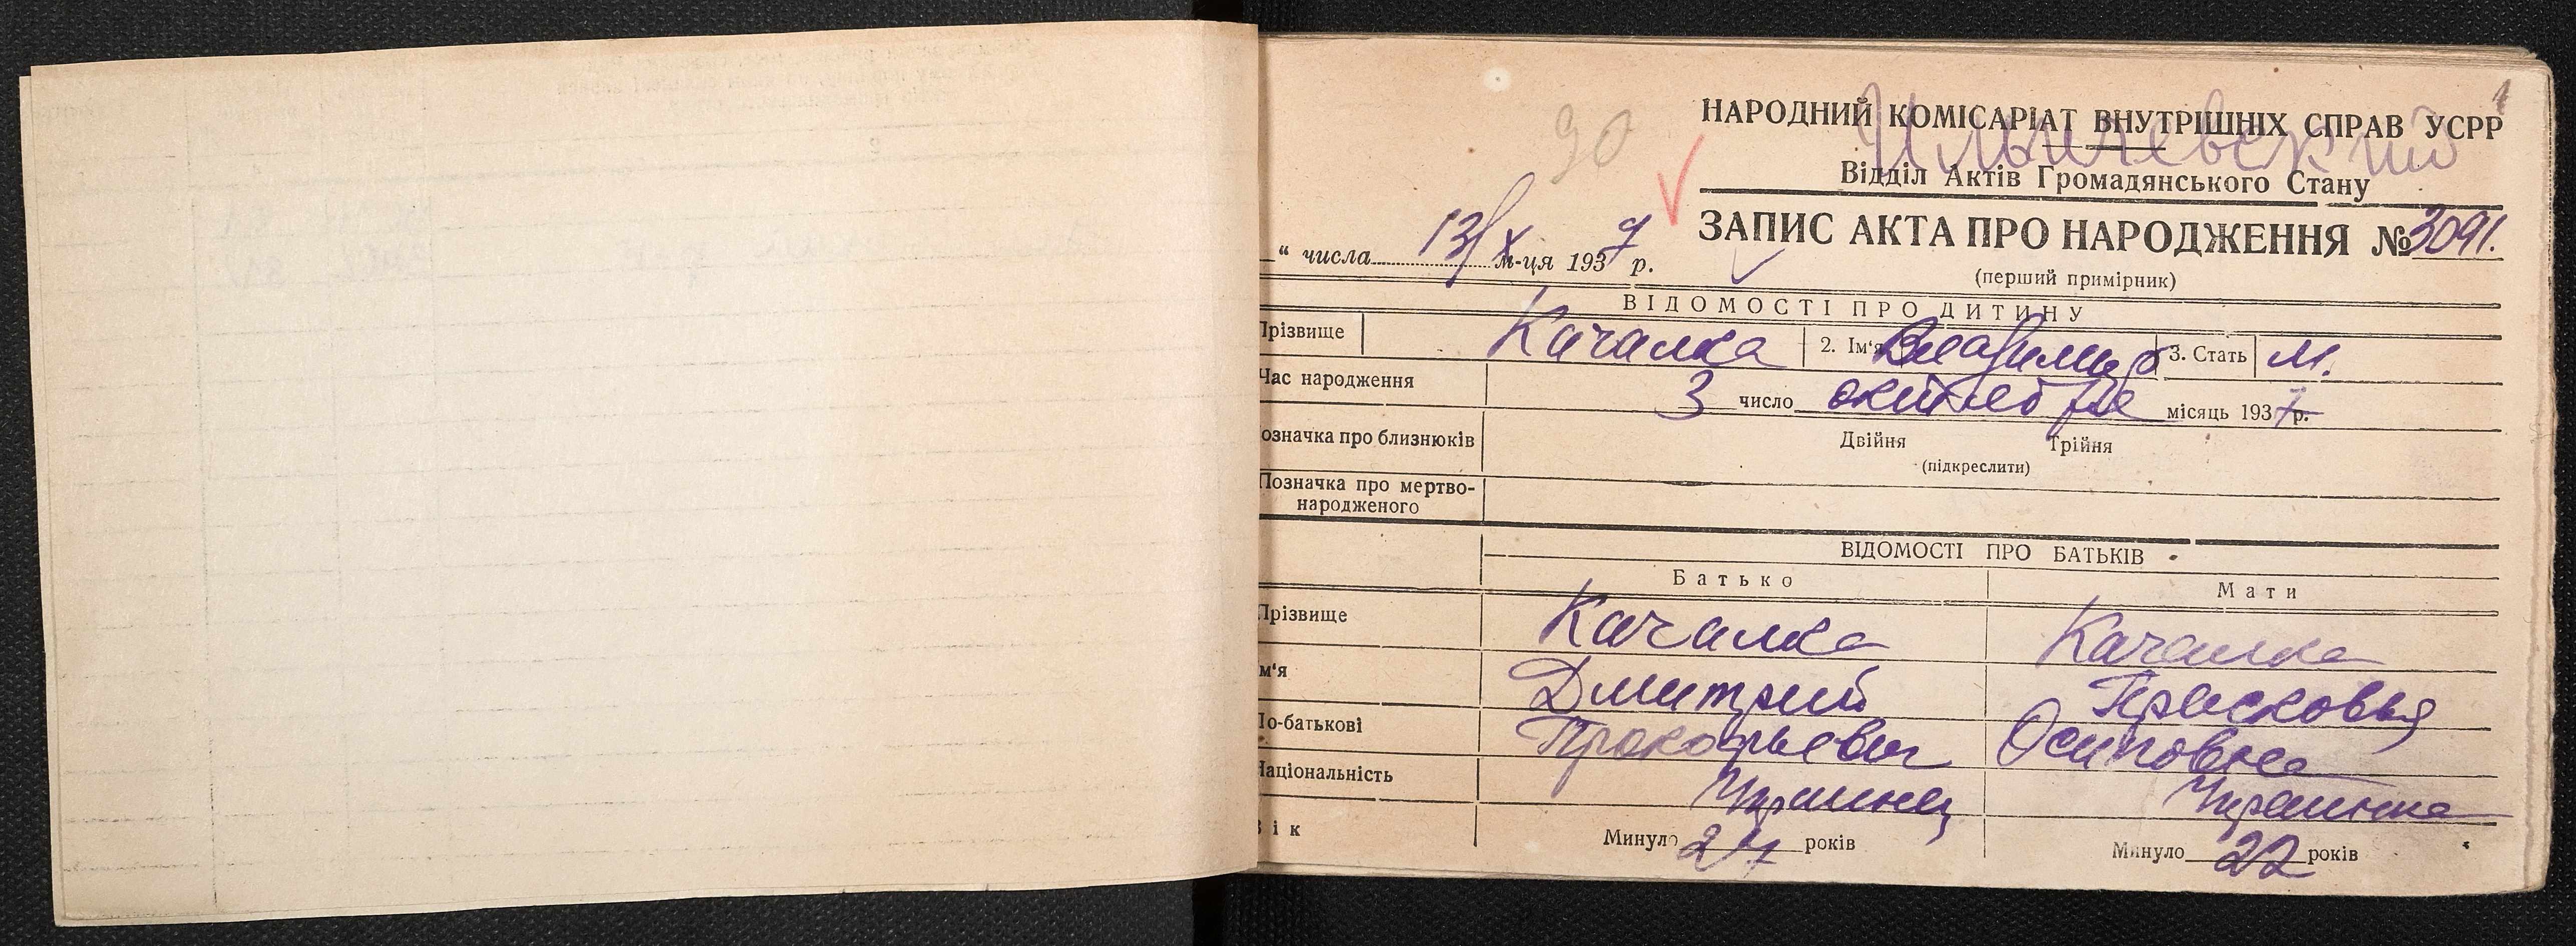 1
90
НАРОДНИЙ КОМІСАРІАТ ВНУТРІШНІХ СПРАВ УСРР
Ильичевский
Відділ Актів Громадянського Стану
ЗАПИС АКТА ПРО НАРОДЖЕННЯ № 3091.
(перший примірник)
“ числа 13/X м-ця 1937 р.
ВІДОМОСТІ ПРО ДИТИНУ
Прізвище Качалка 2. Ім‘я Владимир 3. Стать М.
Час народження 3 число октября місяць 1937 р.
означка про близнюків Двійня Трійня
(підкреслити)
Позначка про мертво-
народженого
ВІДОМОСТІ ПРО БАТЬКІВ
Батько Мати
Прізвище Качалка Качалка
м‘я Дмитрий Прасковья
По-батькові Прокофьевич Осиповна
Національність Украинец Украинка
Вік Минуло 24 років Минуло 22 років